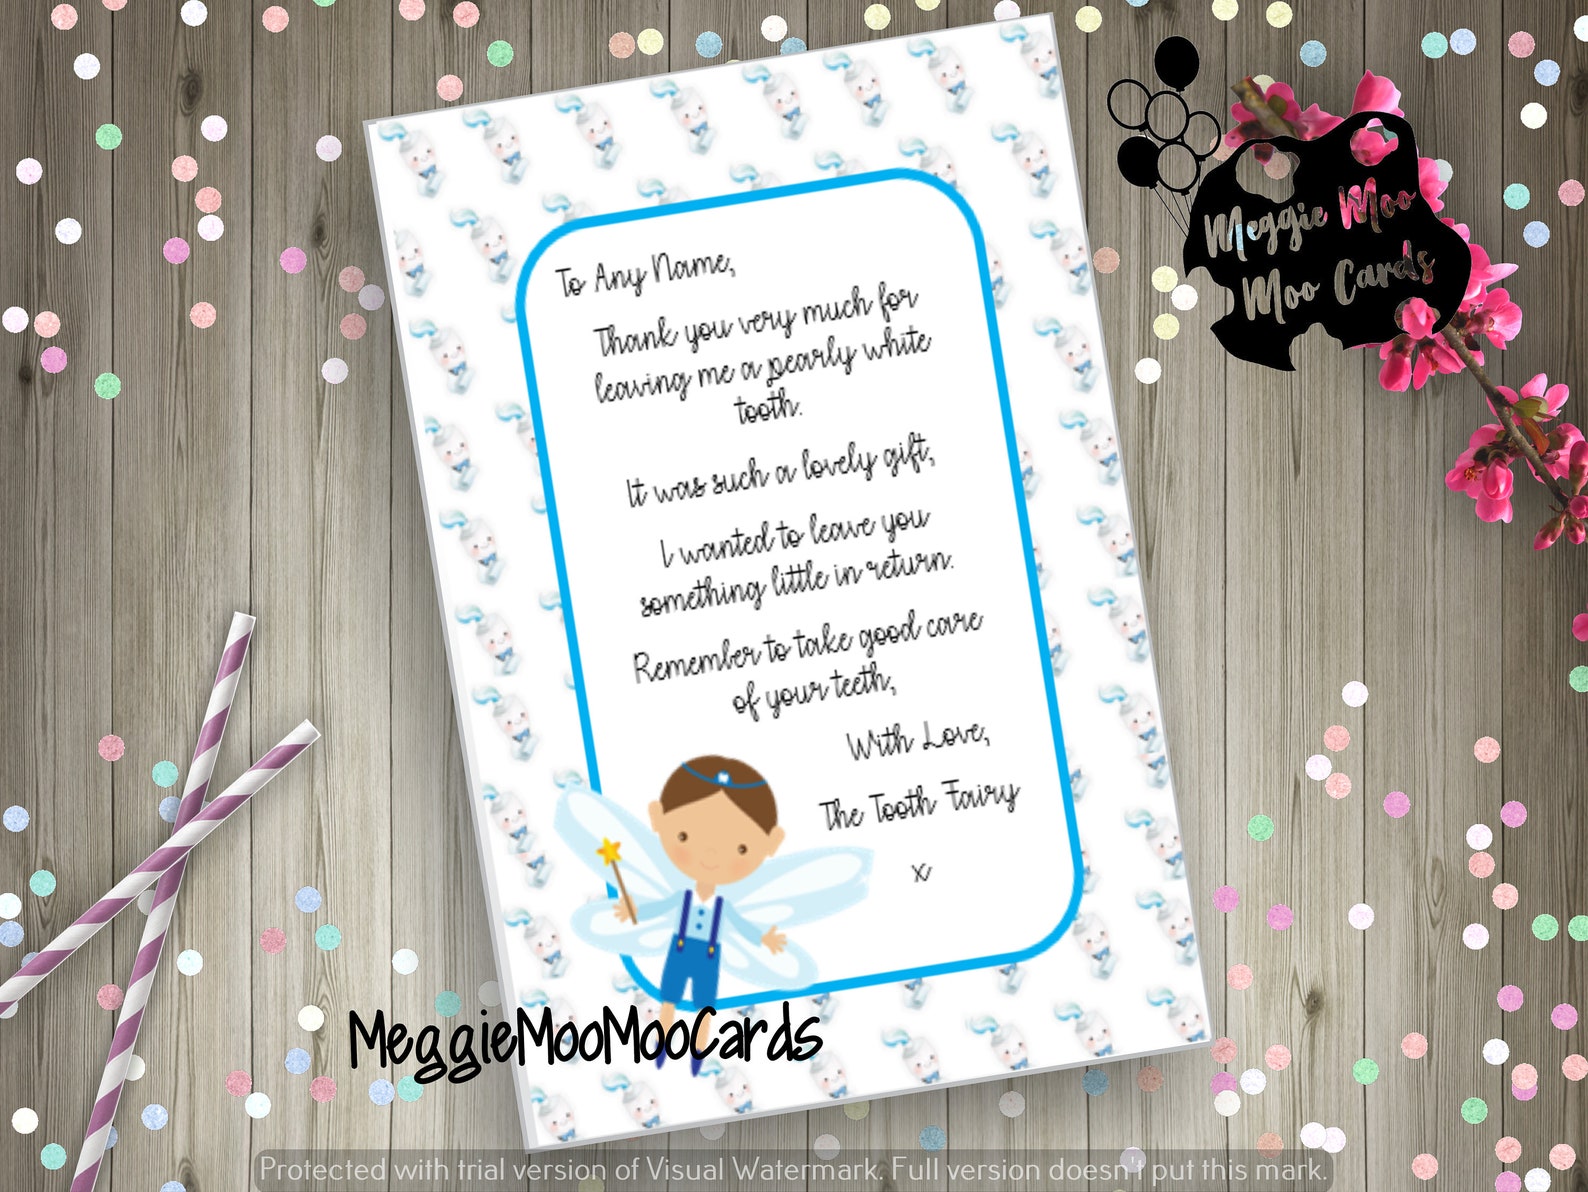 To Any Name,
Thank you very much for
leaving me a pearly white
tooth.
It was such a lovely gift,
I wanted to leave you
something little in return.
Remember to take good care
of your teeth,
With Love,
The Tooth Fairy
x
Meggie Moo
Moo Cards
MeggieMooMooCards
Protected with trial version of Visual Watermark. Full version doesn't put this mark.